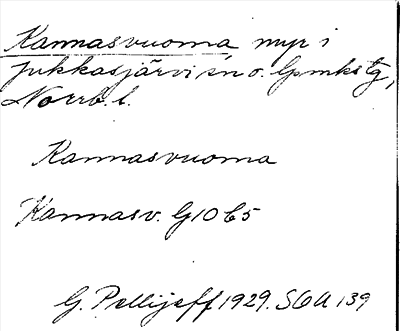 Kannasvuoma myr i
Jukkasjärvi sn o. lpmks tg,
Norrb. l.
Kannasvuoma
Kannasv. G10 b5
G. Pellijeff 1929. SOA 139